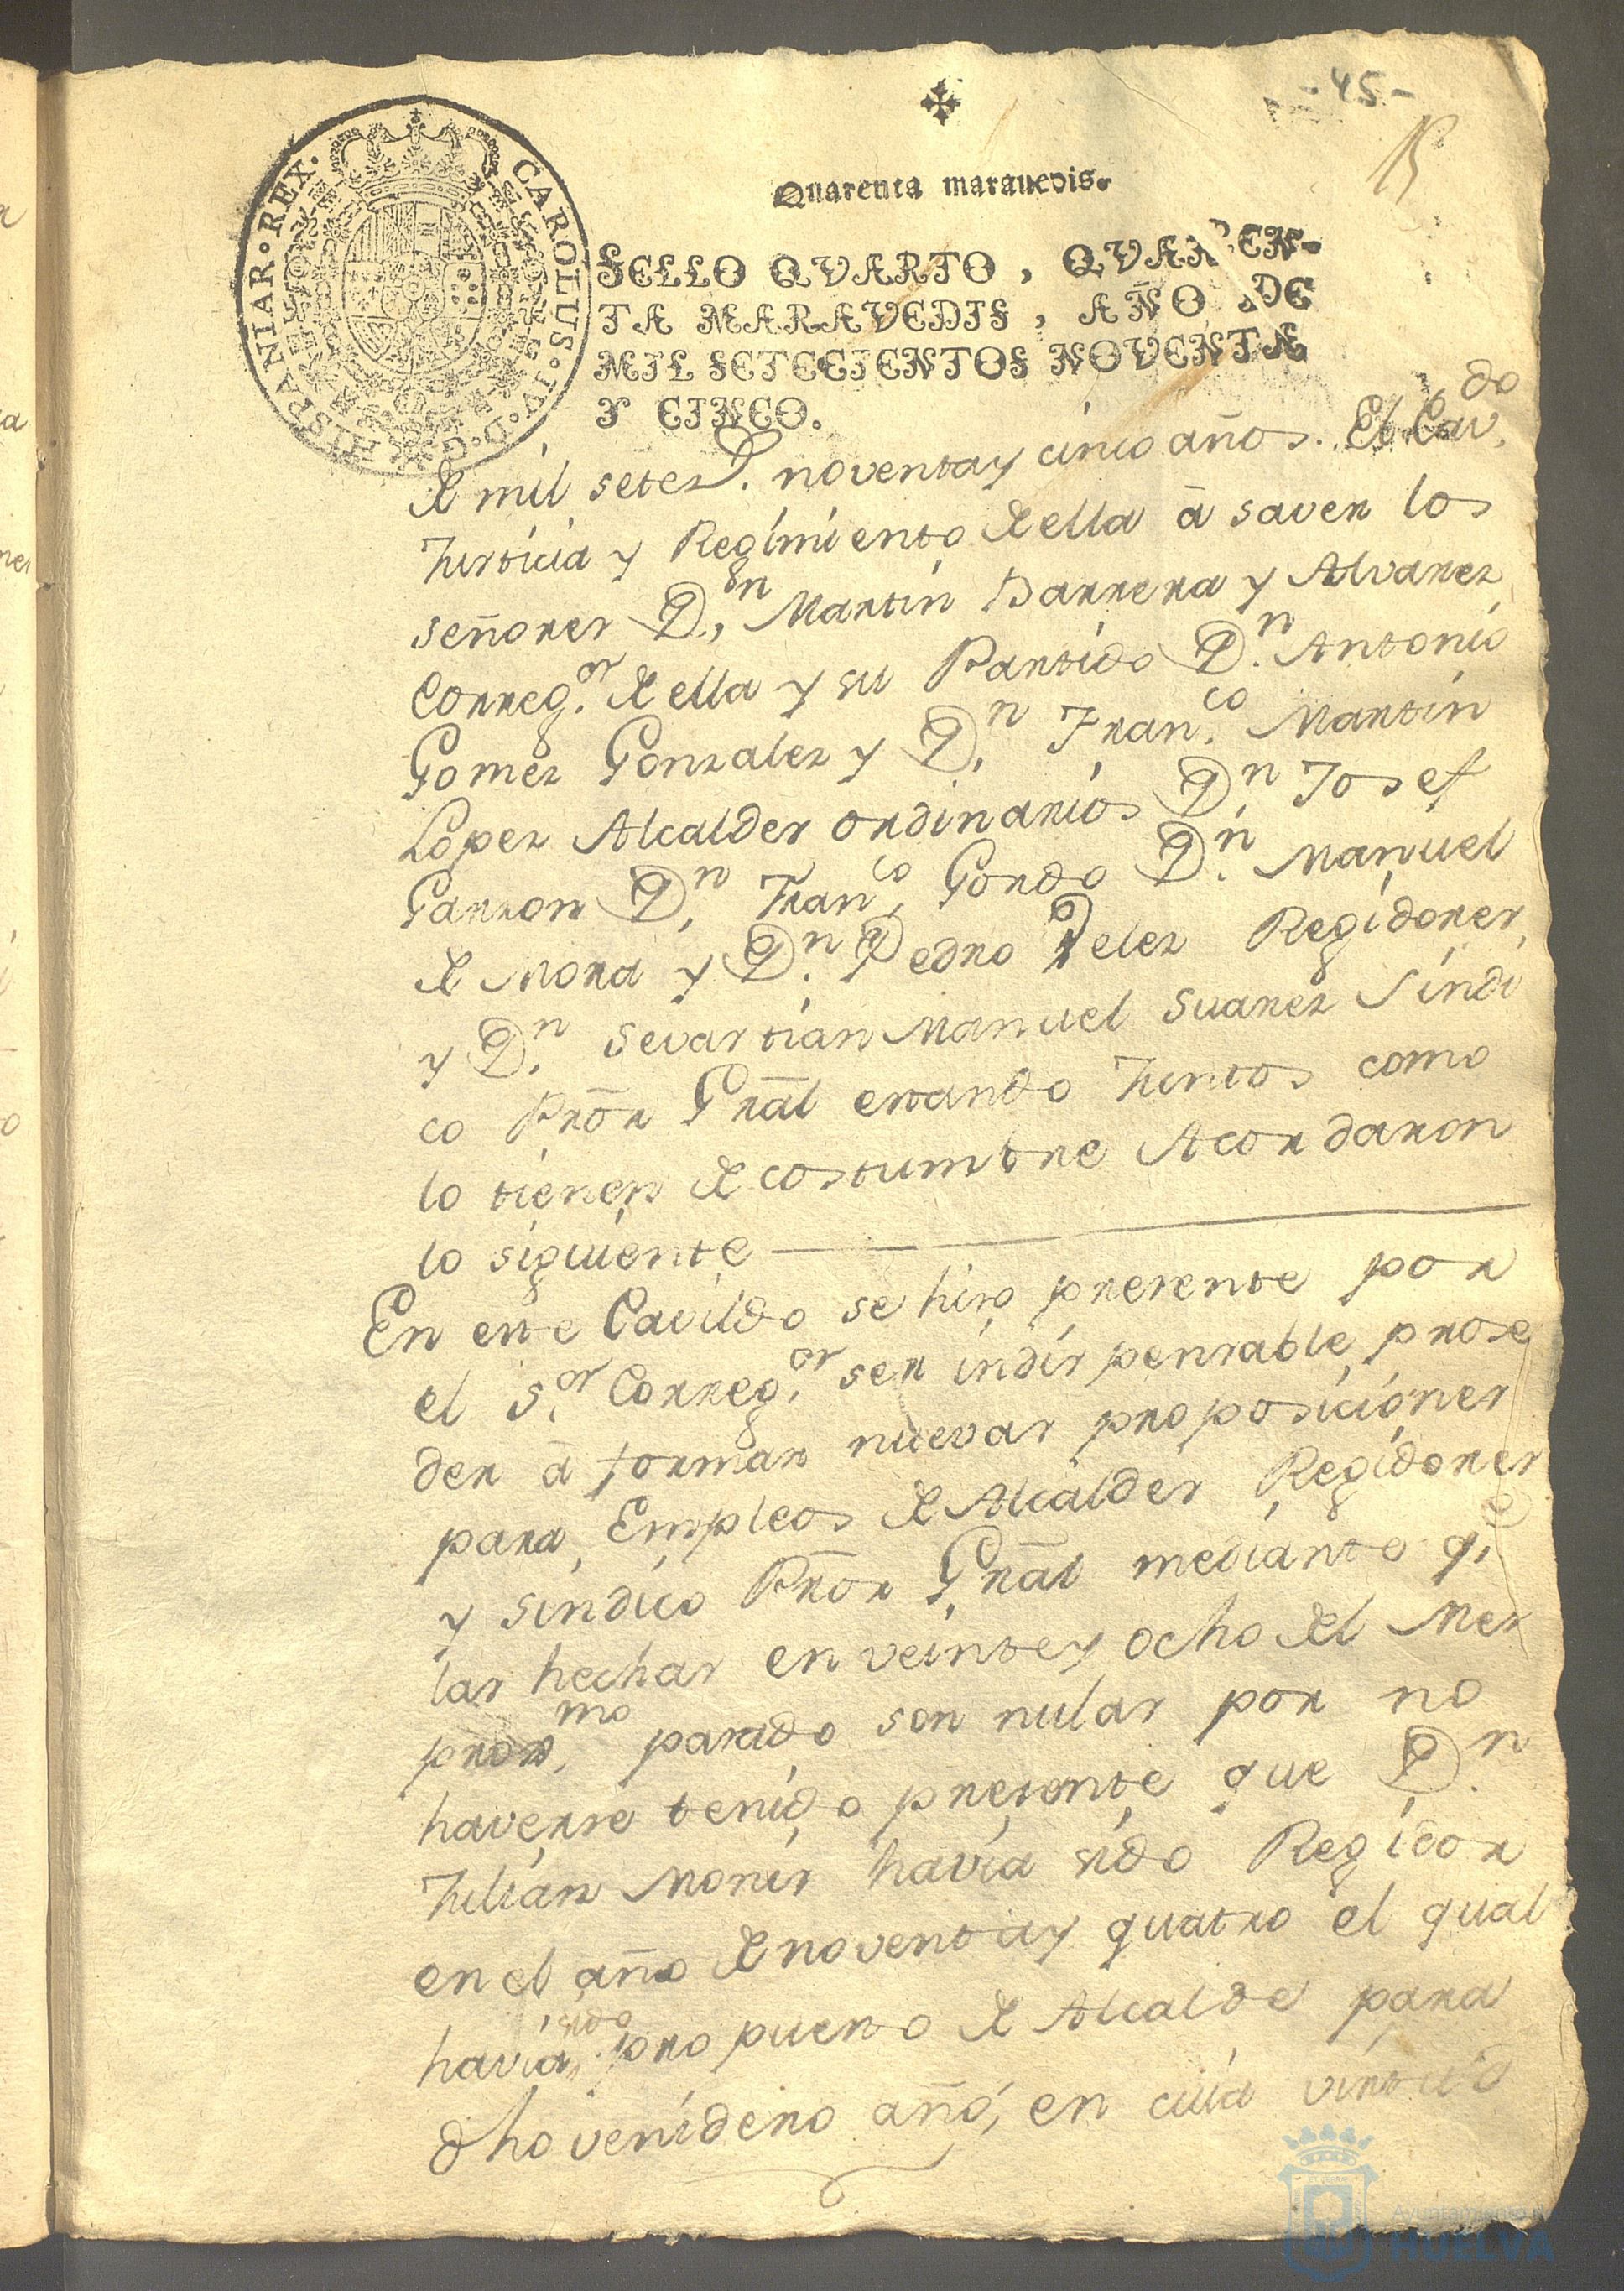 -45-
Quarenta marauedis.
SELLO QVARTO, QVAREN-
TA MARAVEDIS, AÑO DE
MIL SETECIENTOS NOVENTA
Y CINCO.
CAROLUS·IV·D·G·HISPANIAR·REX·
de mil setez.s noventa y cinco años. El Cav.do
Justicia y Regimiento de ella â saver los
señores D.n Martin Barrera y Alvarez
Correg.or de ella y su Partido D.n Antonio
Gomez Gonzalez y D.n Fran.co Martin
Lopez Alcaldes ordinarios D.n Josef
Garzon D.n Fran.co Gordo D.n Manuel
de Mora y D.n Pedro Velez Regidores,
y D.n Sevastian Manuel Suarez Sindi
co Prõr Grãl estando Juntos como
lo tienen de costumbre Acordaron
lo siguiente
En este Cavildo se hizo presente por
el S.or Correg.or ser indispensable prose
der â formar nuevas proposiciones
para Empleos de Alcaldes Regidores
y Sindico Prõr Grãl mediante q.e
las hechas en veinte y ocho del Mes
prox.mo pasado son nulas por no
haverse tenido presente que D.n
Julian Monis havia sido Regidor
en el año de noventa y quatro el qual
havia sido propuesto de Alcalde para
dho venidero año, en cuia virtud
Ayuntamiento
HUELVA